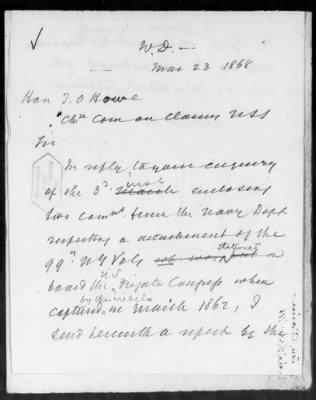 W.D. —
Mar 23 1868
Hon T. O Howe
Chn Com on Claims USS
Sir
In reply to your enquiry
of the 3d March inst enclosing
two comns from the Navy Dept
respecting a detachment of the
99th N Y Vols who were stationed on
board the U.S. Frigate Congress when
captured by the rebels in March 1862, I
send herewith a report by the